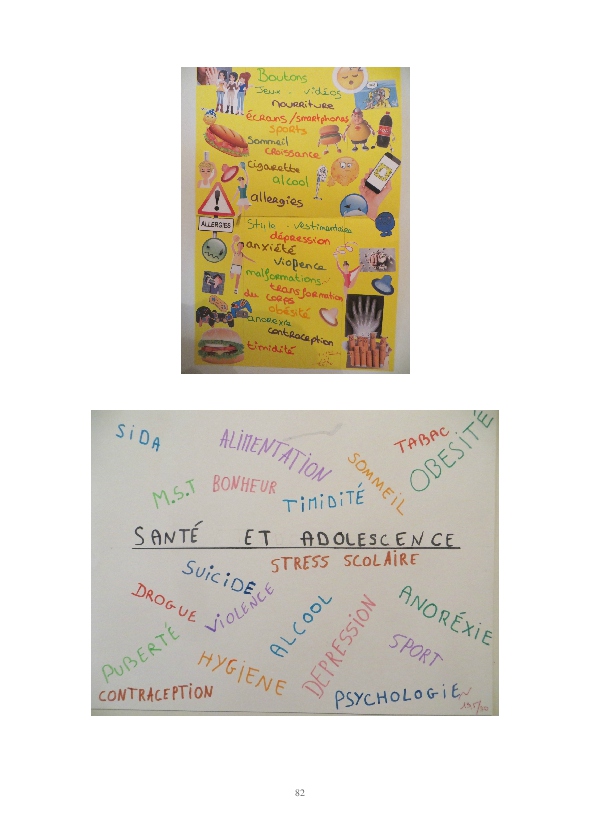 Boutons
Jeux vidéos
nourriture
écrans/smartphones
sports
Sommeil
croissance
cigarette
alcool
allergies
ALLERGIES
Style vestimentaire
dépression
anxiété
violence
malformations
transformation
du corps
obésité
anorexie
contraception
timidité
SIDA
ALIMENTATION
TABAC
OBESITÉ
M.S.T
BONHEUR
SOMMEIL
TIMIDITÉ
SANTÉ ET ADOLESCENCE
STRESS SCOLAIRE
SUICIDE
DROGUE
VIOLENCE
ALCOOL
DEPRESSION
ANORÉXIE
PUBERTÉ
HYGIENE
SPORT
CONTRACEPTION
PSYCHOLOGIE
82